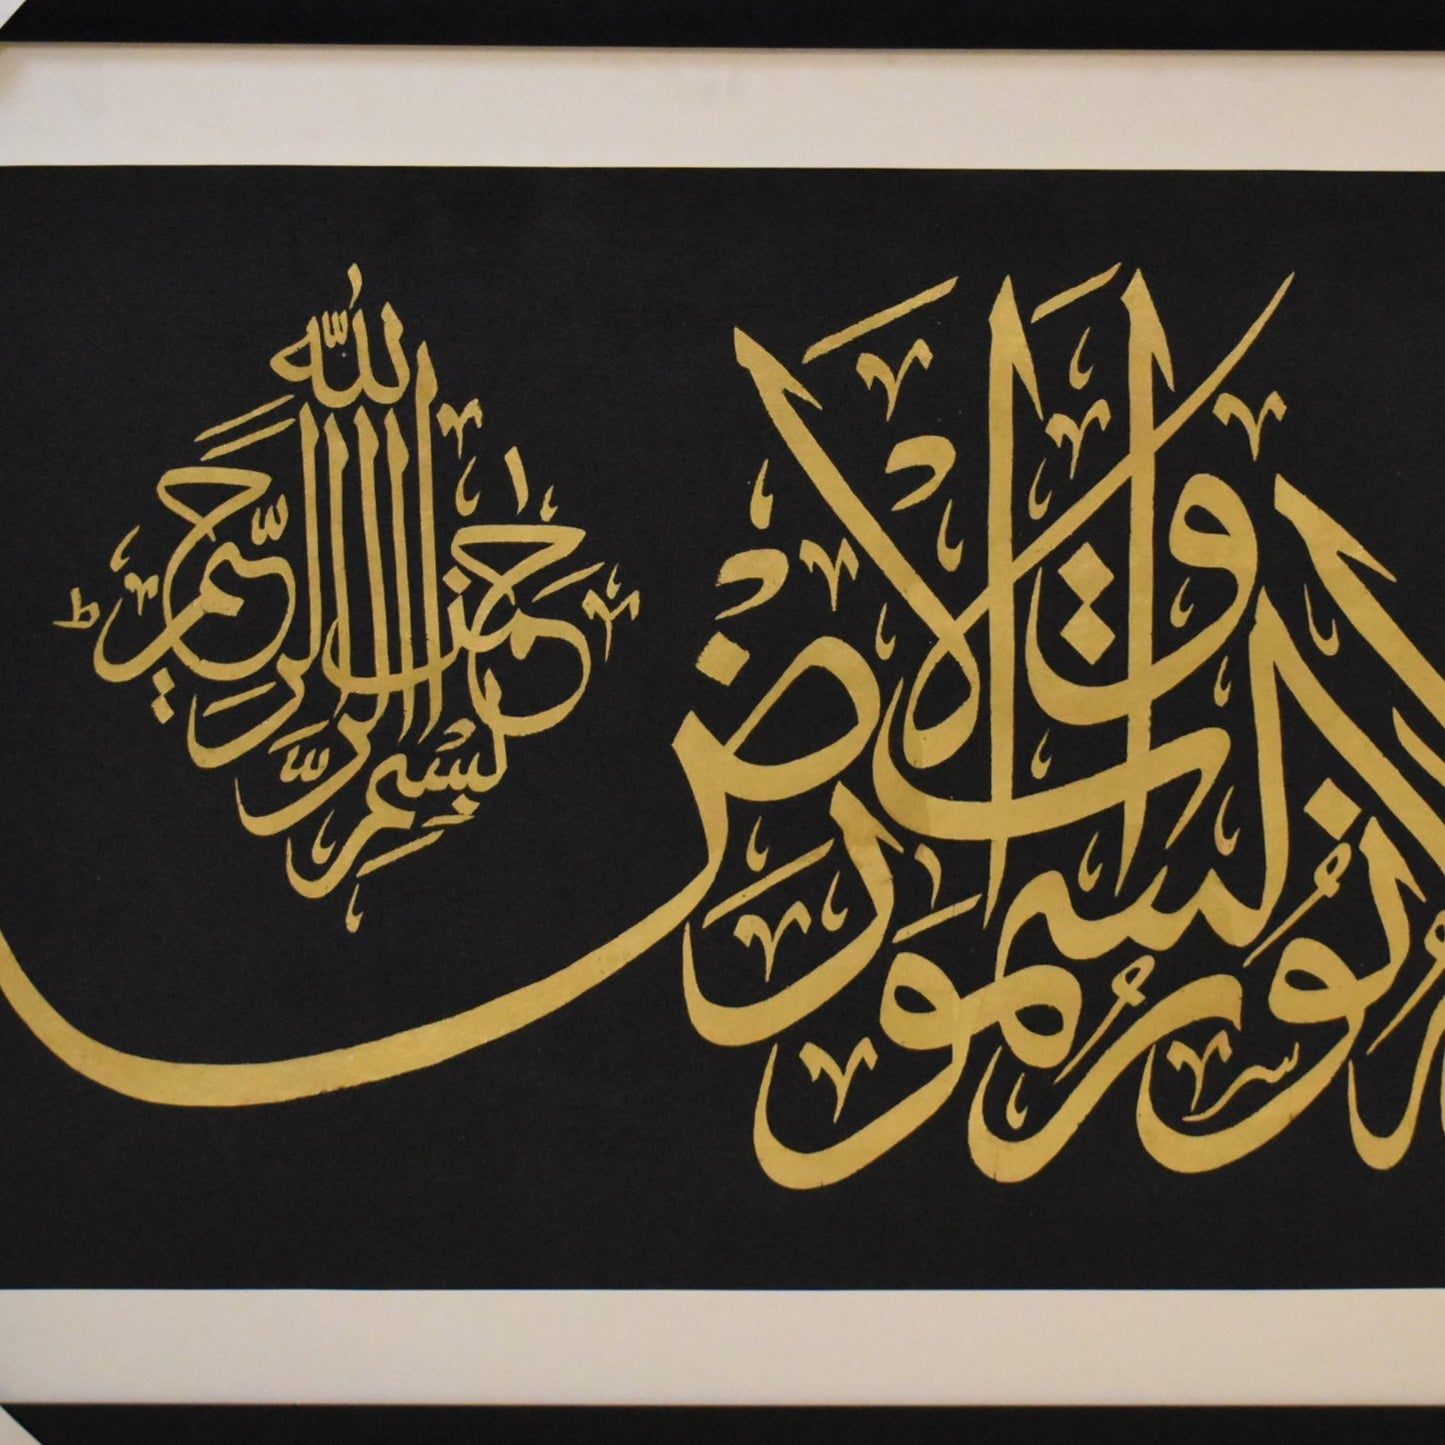 الله نور السموات والارض
بسم الله الرحمن الرحيم